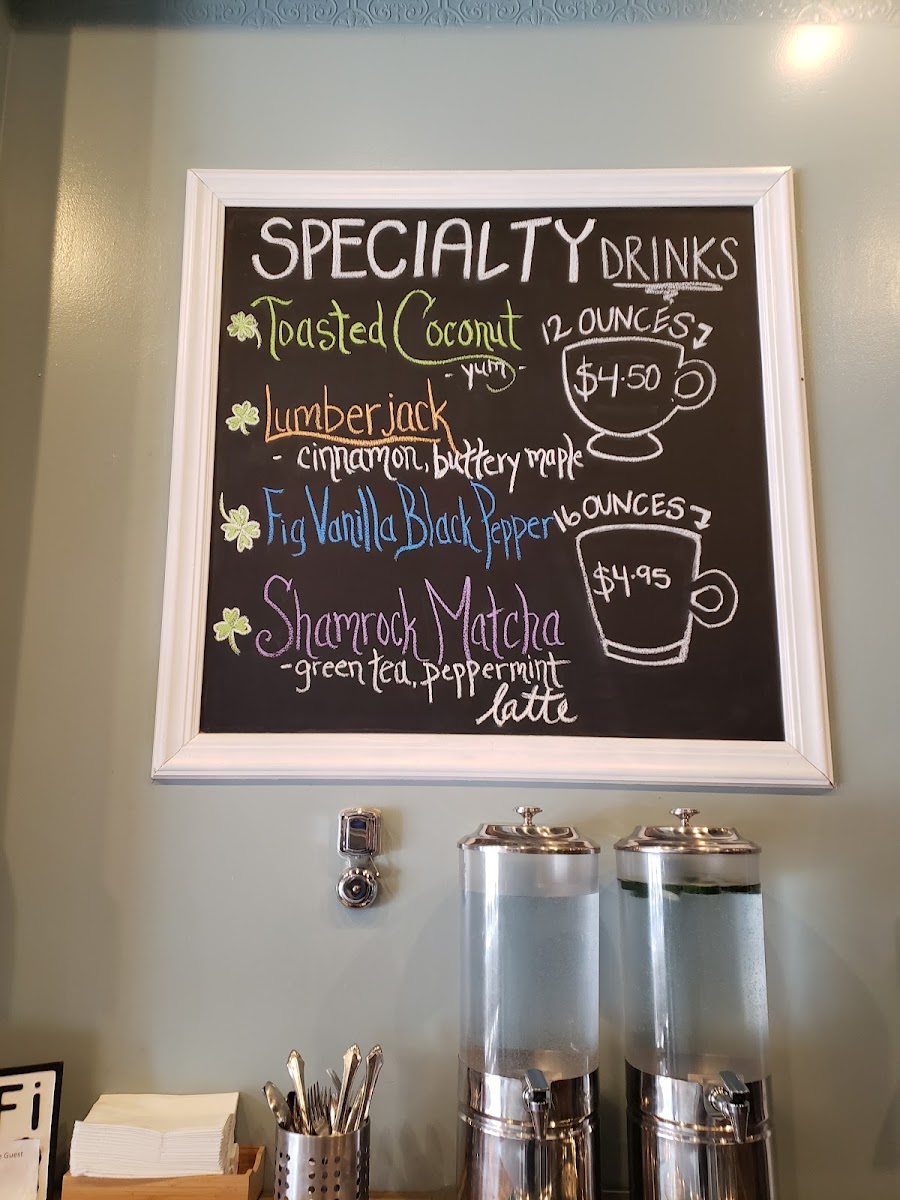 SPECIALTY DRINKS
Toasted Coconut
- yum -
12 OUNCES
$4.50
Lumberjack
- cinnamon, buttery maple
Fig Vanilla Black Pepper
16 OUNCES
$4.95
Shamrock Matcha
- green tea, peppermint
latte
Fi
Guest